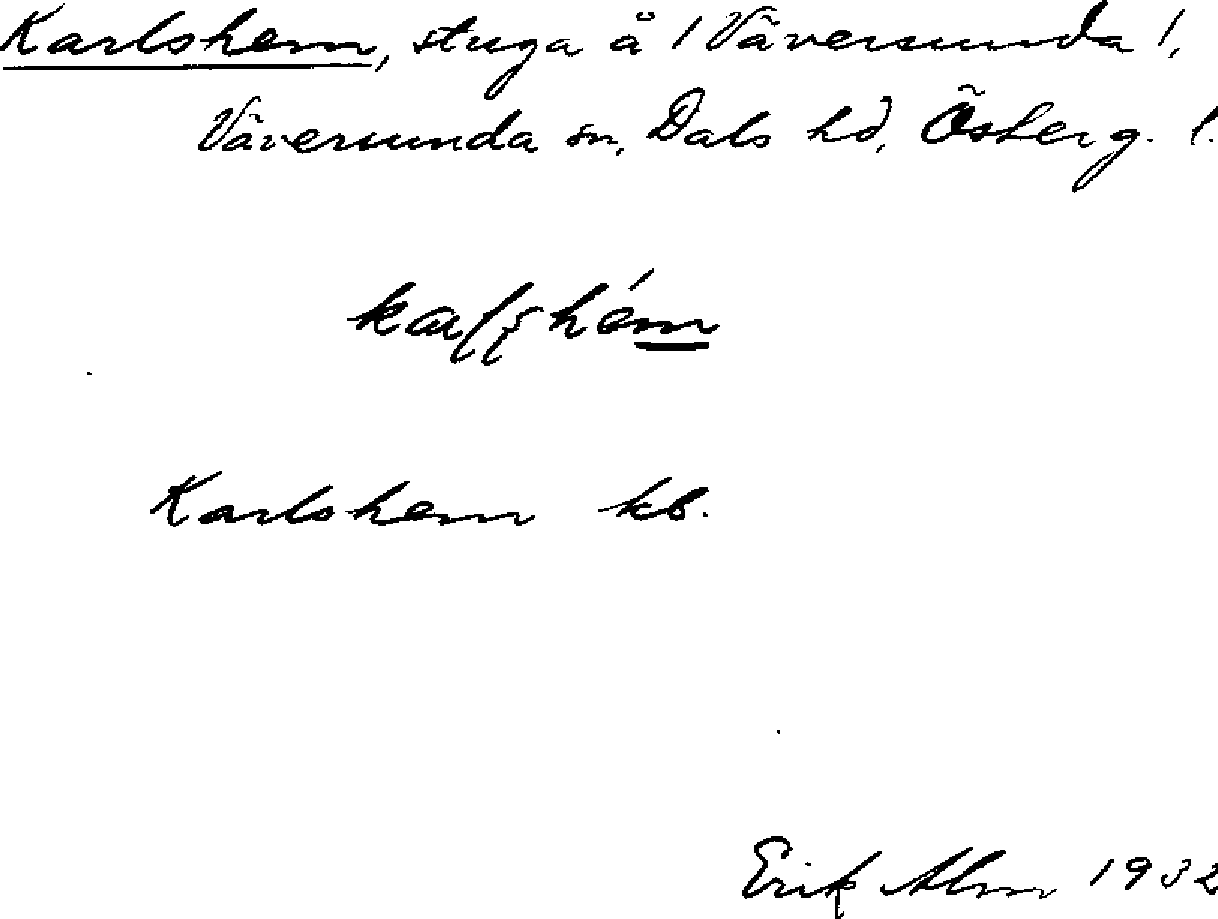 Karlshem, stuga å /Väversunda/,
Väversunda sn, Dals hd, Österg. l.
Karlshem kb.
Erik Alm 1932